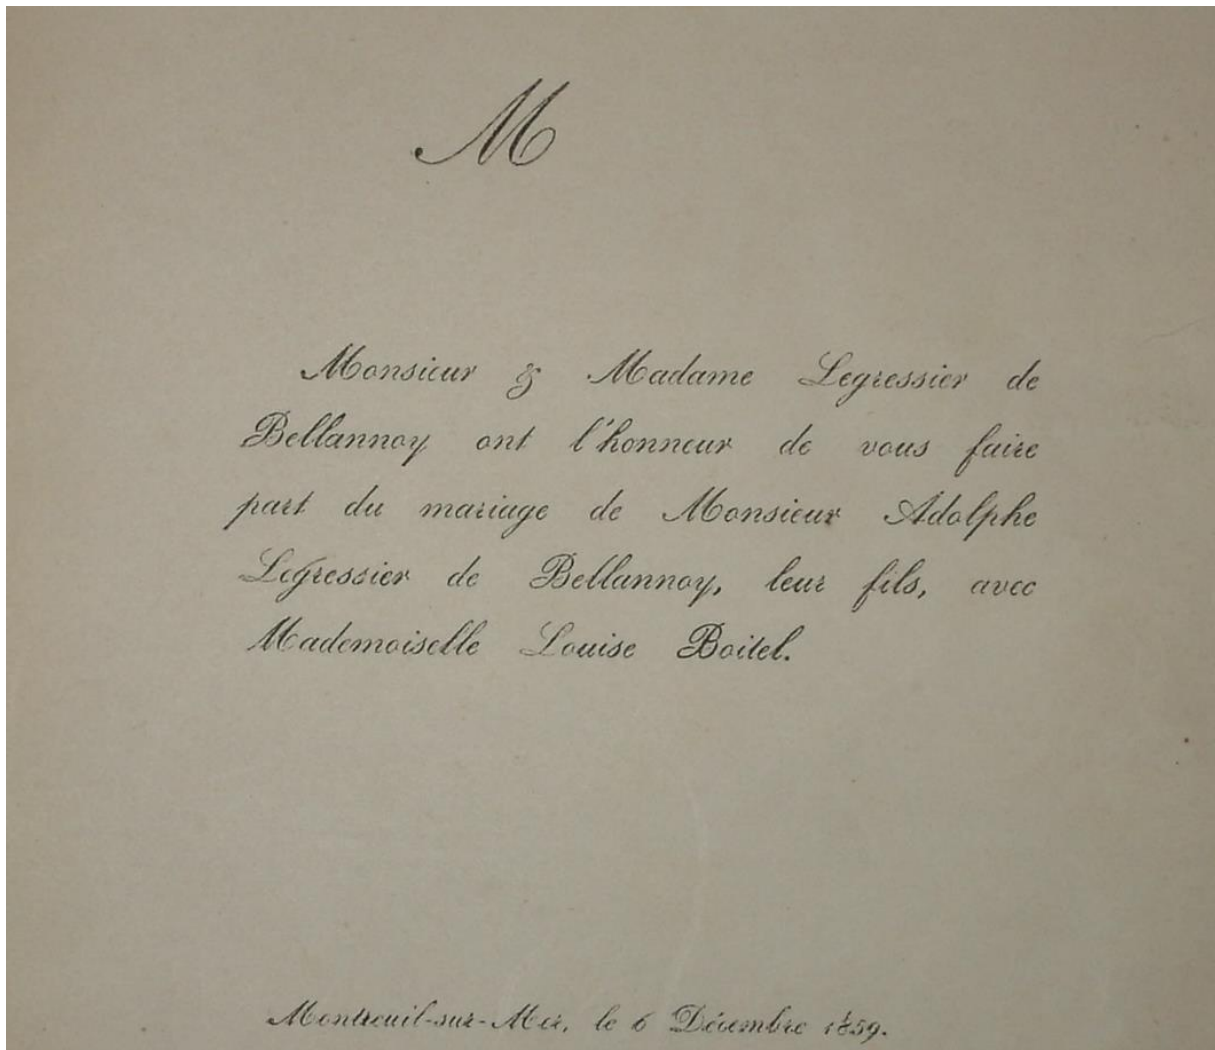 M
Monsieur & Madame Legressier de
Bellannoy ont l'honneur de vous faire
part du mariage de Monsieur Adolphe
Legressier de Bellannoy, leur fils, avec
Mademoiselle Louise Boitel.
Montreuil-sur-Mer, le 6 Décembre 1859.